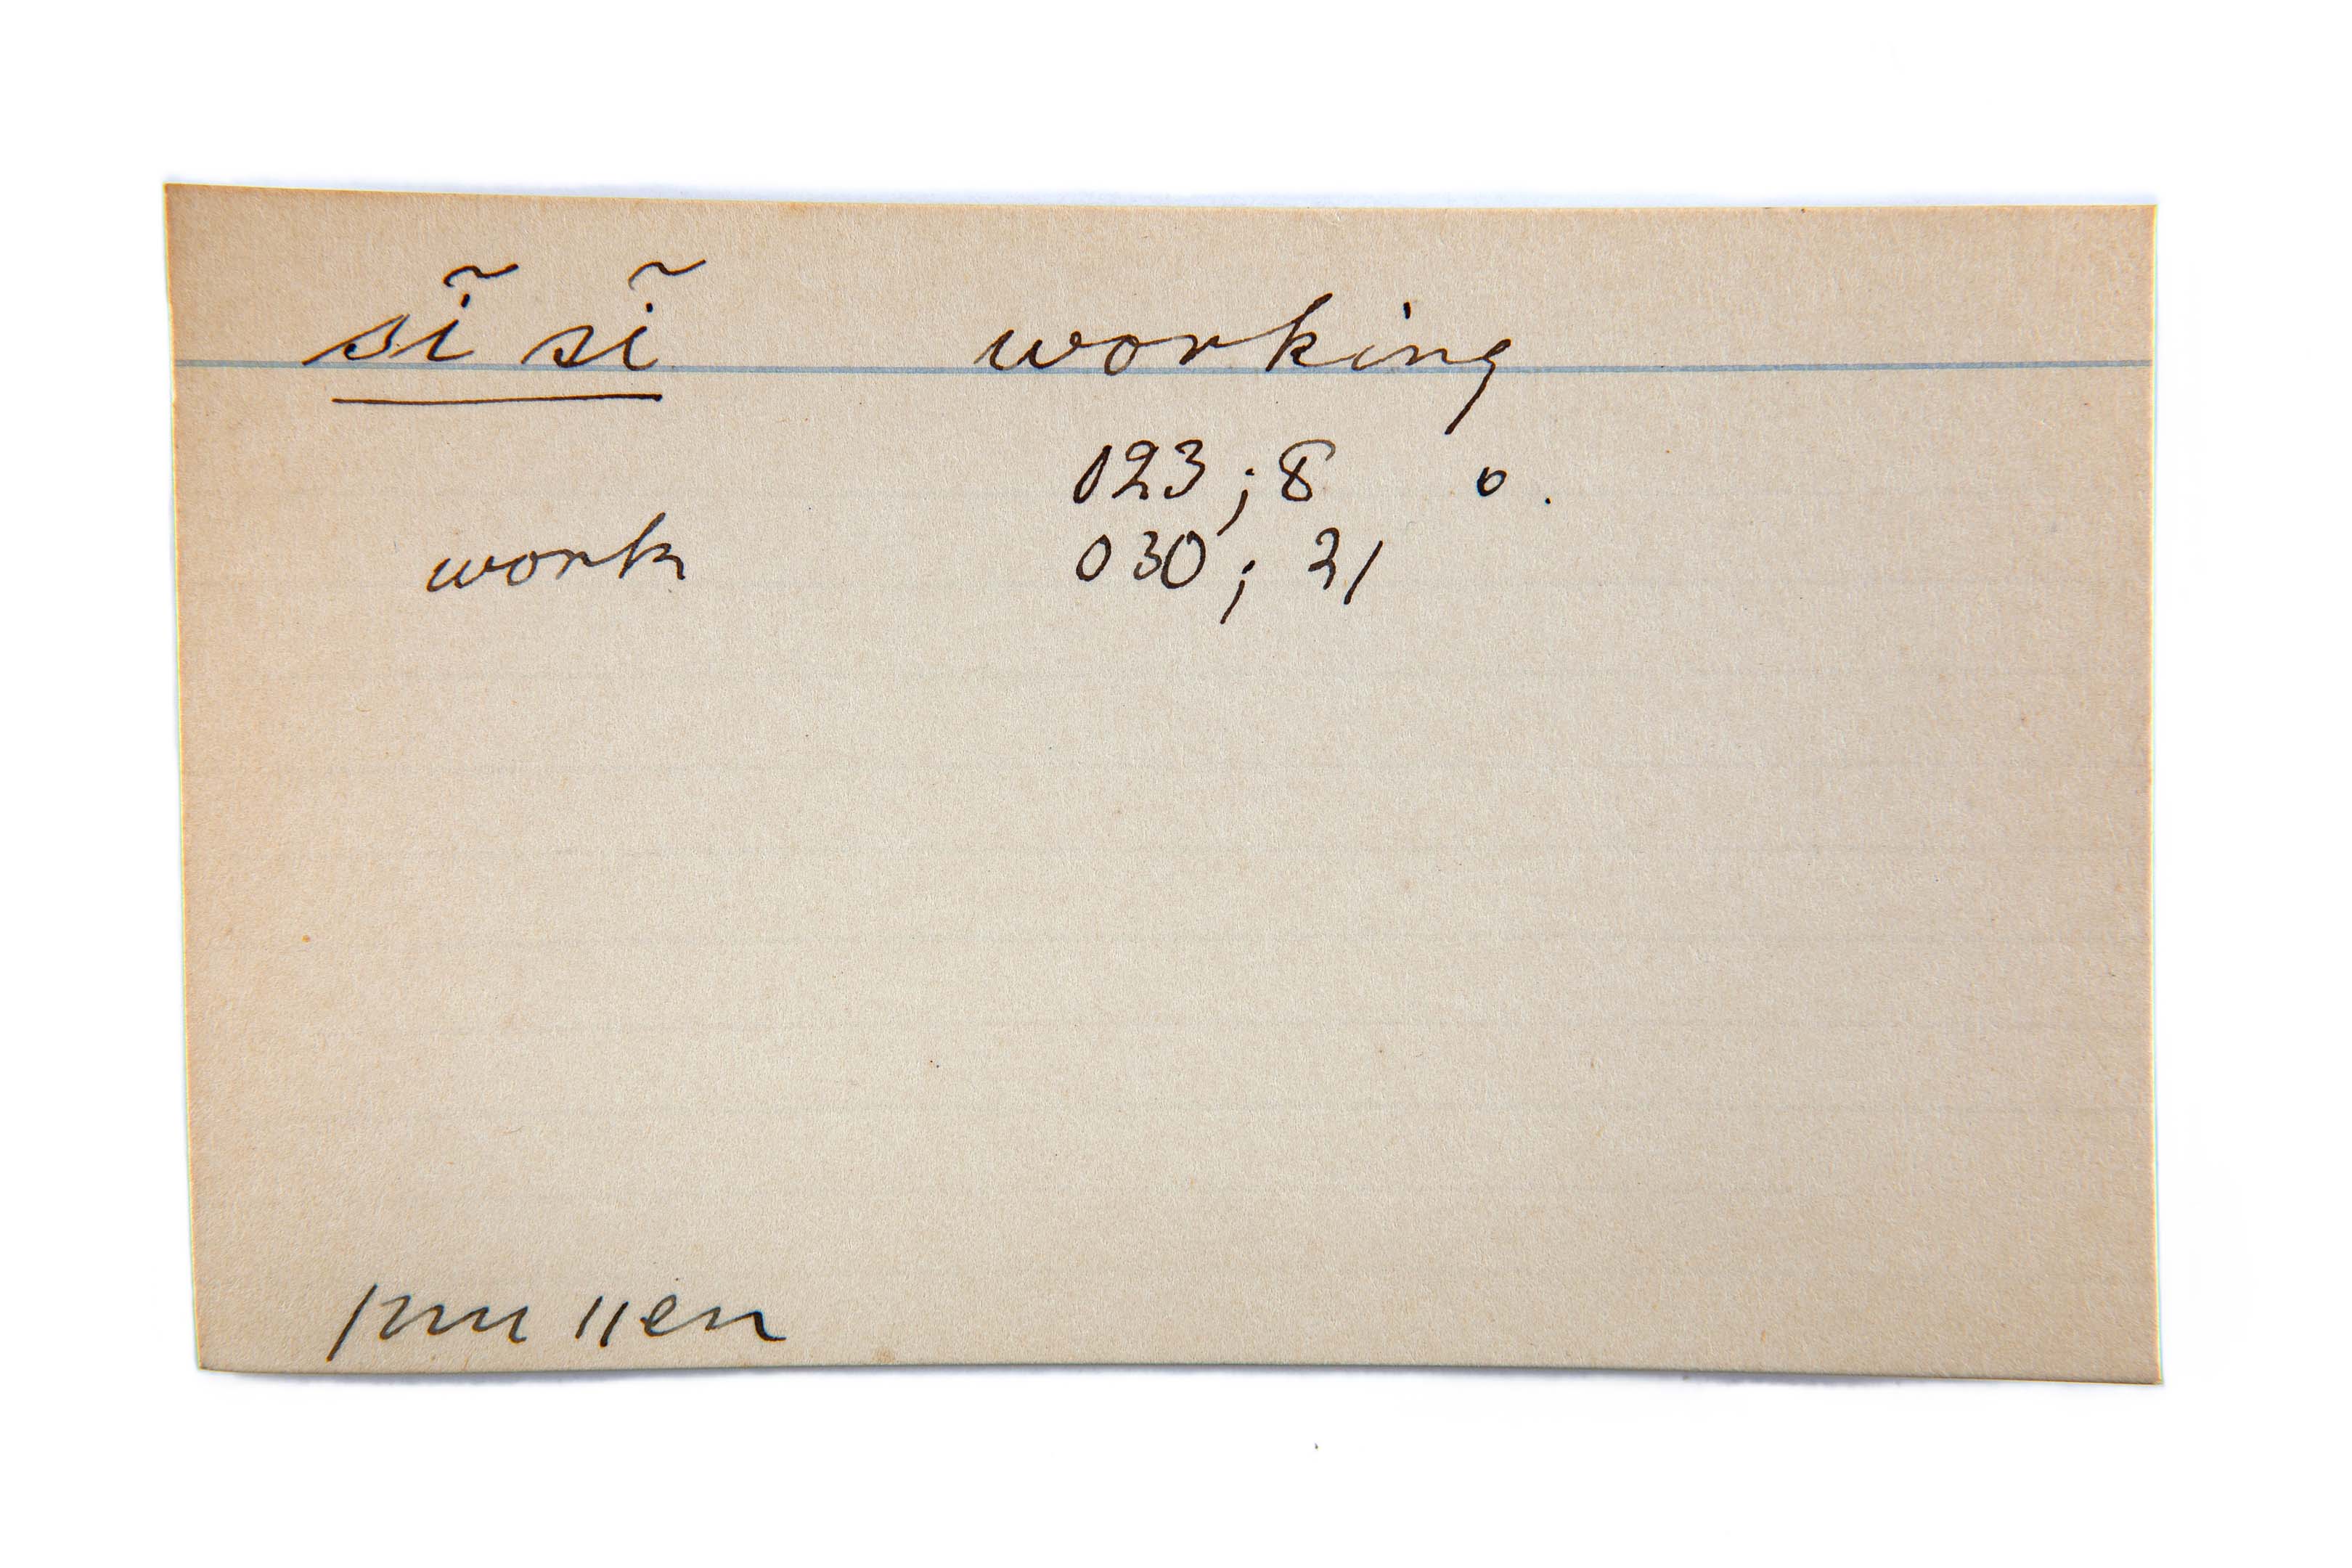 sĩ sĩ working
123 ; 8 o.
work 030 ; 21